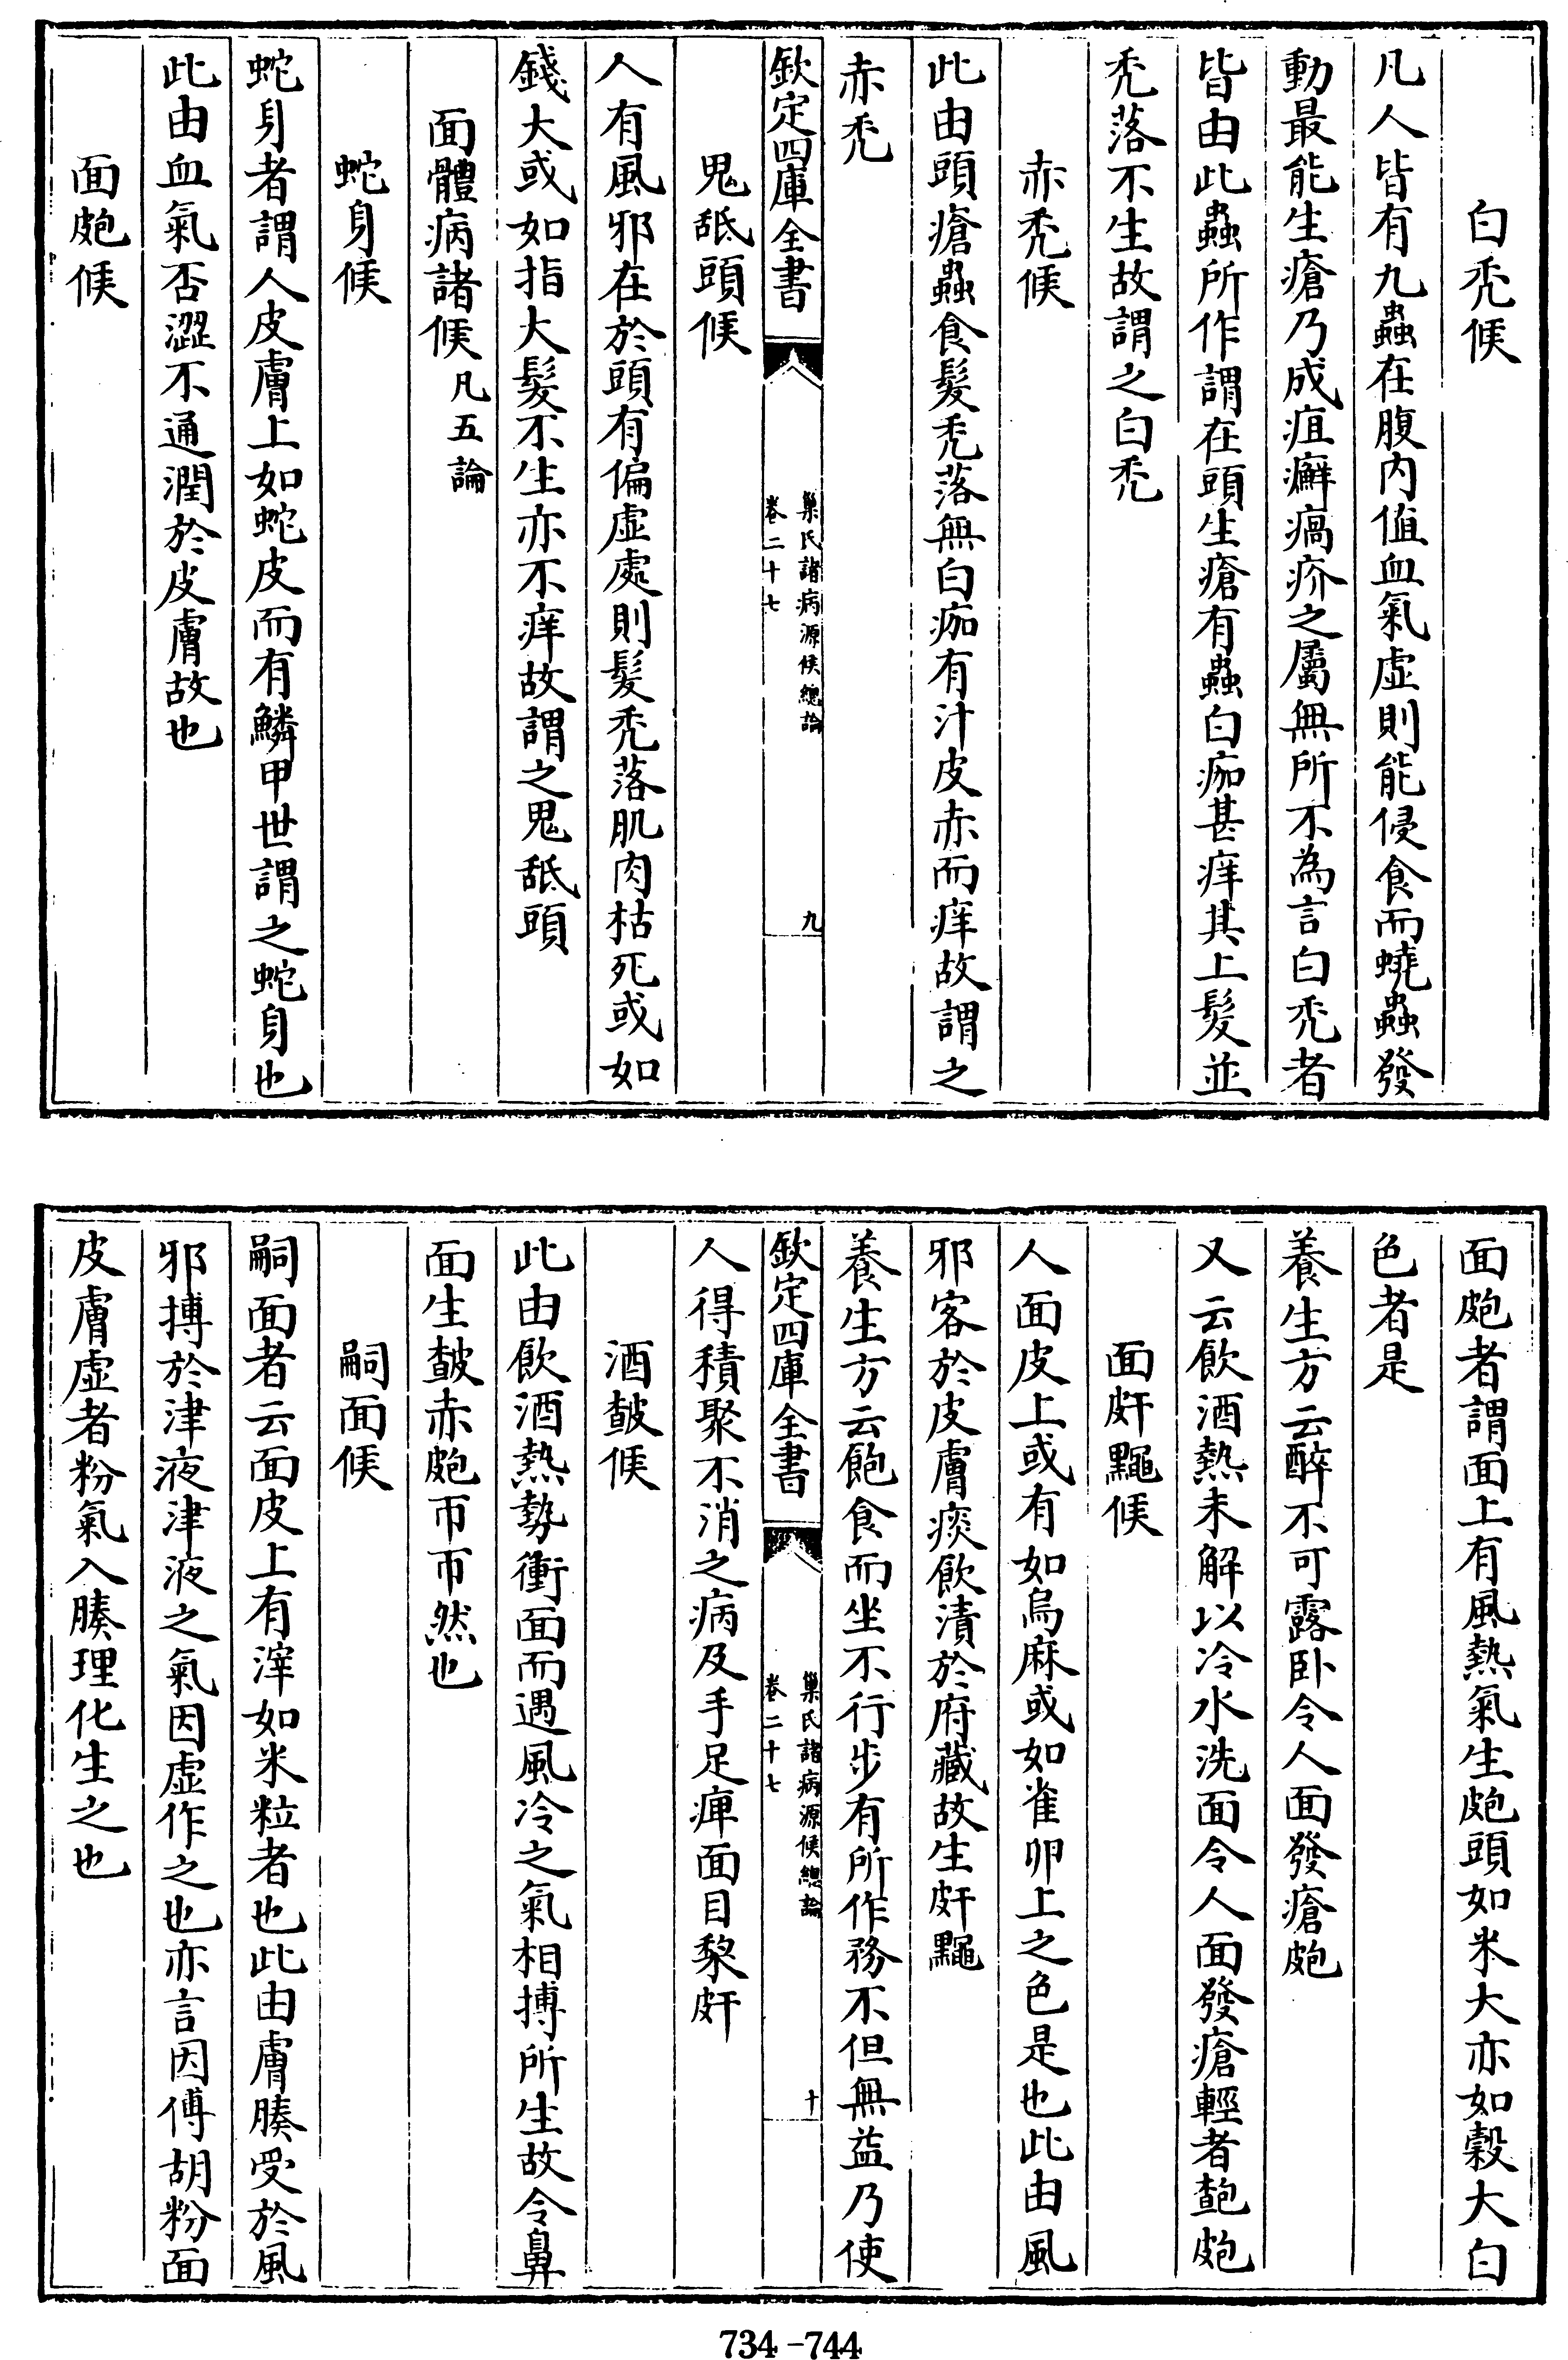 白禿候
凡人皆有九蟲在腹内值血氣虛則能侵食而蟯蟲發
動最能生瘡乃成疽癬瘑疥之屬無所不為言白禿者
皆由此蟲所作謂在頭生瘡有蟲白痂甚痒其上髮並
禿落不生故謂之白禿
赤禿候
此由頭瘡蟲食髮禿落無白痂有汁皮赤而痒故謂之
赤禿
欽定四庫全書
巢氏諸病源候總論
卷二十七
九
鬼舐頭候
人有風邪在於頭有偏虛處則髮禿落肌肉枯死或如
錢大或如指大髮不生亦不痒故謂之鬼舐頭
面體病諸候凡五論
蛇身候
蛇身者謂人皮膚上如蛇皮而有鱗甲世謂之蛇身也
此由血氣否澀不通潤於皮膚故也
面皰候
面皰者謂面上有風熱氣生皰頭如米大亦如穀大白
色者是
養生方云醉不可露卧令人面發瘡皰
又云飲酒熱未解以冷水洗面令人面發瘡輕者皶皰
面皯䵴候
人面皮上或有如烏麻或如雀卵上之色是也此由風
邪客於皮膚痰飲漬於府藏故生皯䵴
養生方云飽食而坐不行步有所作務不但無益乃使
欽定四庫全書
巢氏諸病源候總論
卷二十七
十
人得積聚不消之病及手足痺面目黎皯
酒皶候
此由飲酒熱勢衝面而遇風冷之氣相搏所生故令鼻
面生皶赤皰帀帀然也
嗣面候
嗣面者云面皮上有滓如米粒者也此由膚腠受於風
邪搏於津液津液之氣因虛作之也亦言因傅胡粉面
皮膚虛者粉氣入腠理化生之也
734-744